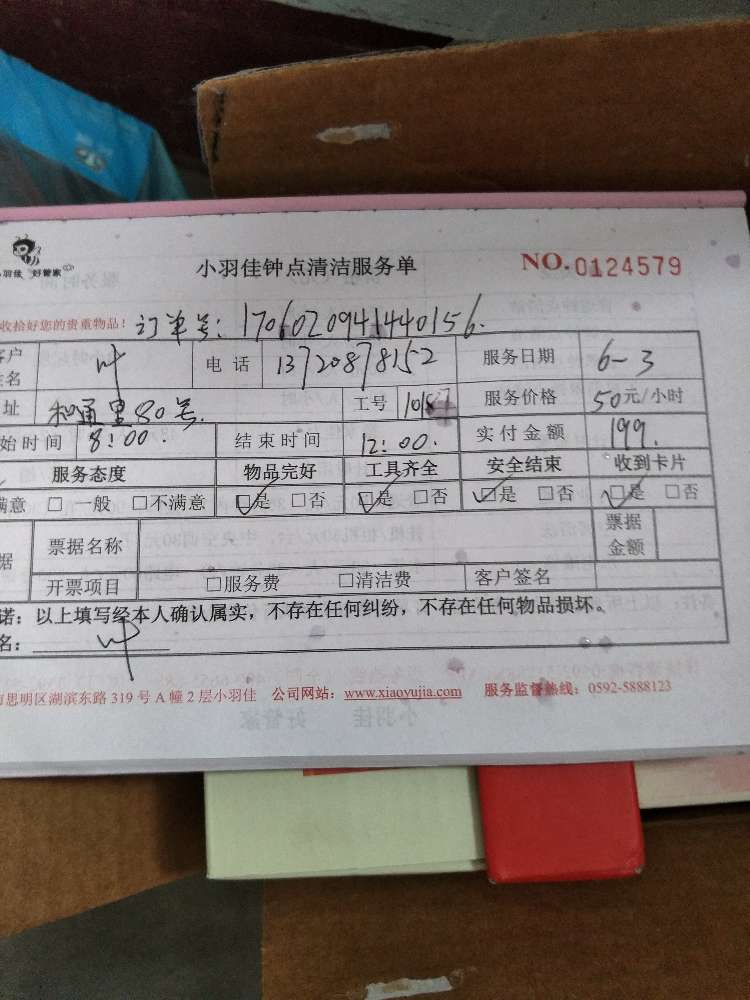 小羽佳钟点清洁服务单 NO.0124579
羽佳 好管家
收拾好您的贵重物品! 订单号:1706020941440156.
客户姓名 叶 电话 13720878152 服务日期 6-3
址 和通里80号. 工号 服务价格 50元/小时
始时间 8:00. 结束时间 12:00. 实付金额 199.
服务态度 物品完好 工具齐全 安全结束 收到卡片
满意 □一般 □不满意 ☑是 □否 ☑是 □否 ☑是 □否 ☑是 □否
据 票据名称 票据金额
开票项目 □服务费 □清洁费 客户签名
诺:以上填写经本人确认属实,不存在任何纠纷,不存在任何物品损坏。
名: 叶
市思明区湖滨东路 319 号 A 幢 2 层小羽佳 公司网站:www.xiaoyujia.com 服务监督热线:0592-5888123